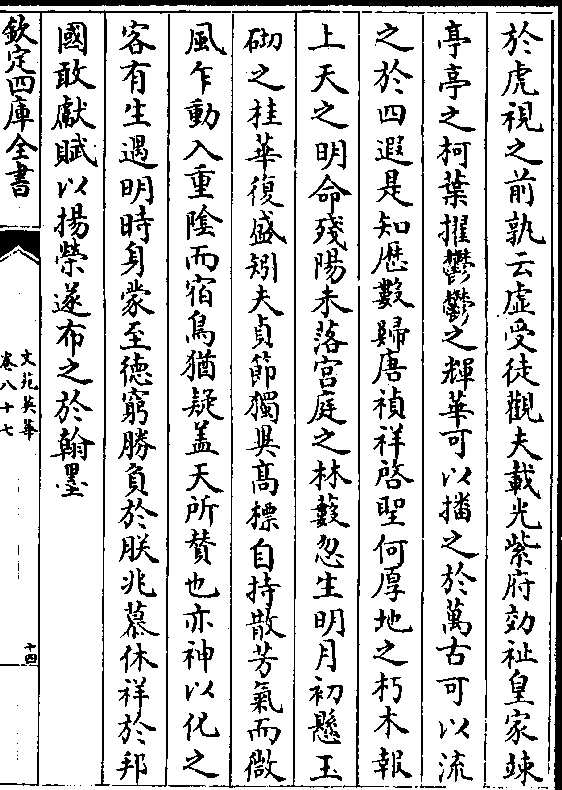 於虎視之前孰云虛受徒觀夫載光紫府効祉皇家竦
亭亭之柯葉擢鬱鬱之輝華可以播之於萬古可以流
之於四遐是知歴數歸唐禎祥啓聖何厚地之朽木報
上天之明命殘陽未落宫庭之林籔忽生明月初懸玉
砌之桂華復盛矧夫貞節獨異髙標自持散芳氣而微
風乍動入重隂而宿鳥猶疑盖天所賛也亦神以化之
客有生遇明時身蒙至徳窮勝負於朕兆慕休祥於邦
國敢獻賦以揚榮遂布之於翰墨
欽定四庫全書
文苑英華
卷八十七
十四